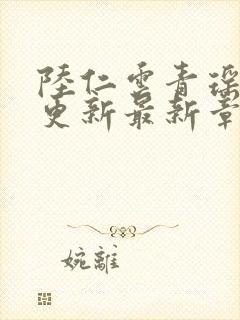 陸仁雲青瑶
更新最新章
婉離